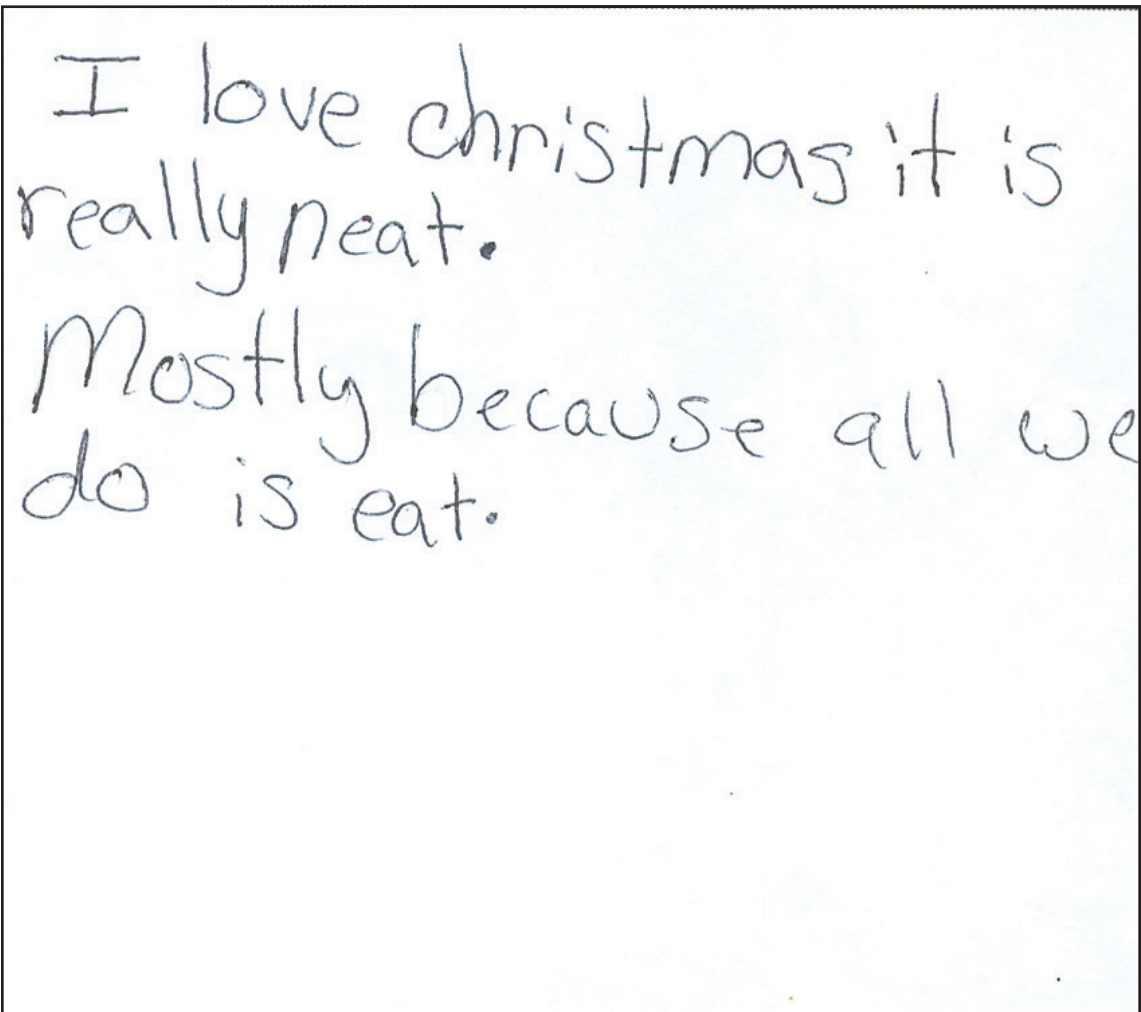 I love christmas it is
really neat.
Mostly because all we
do is eat.